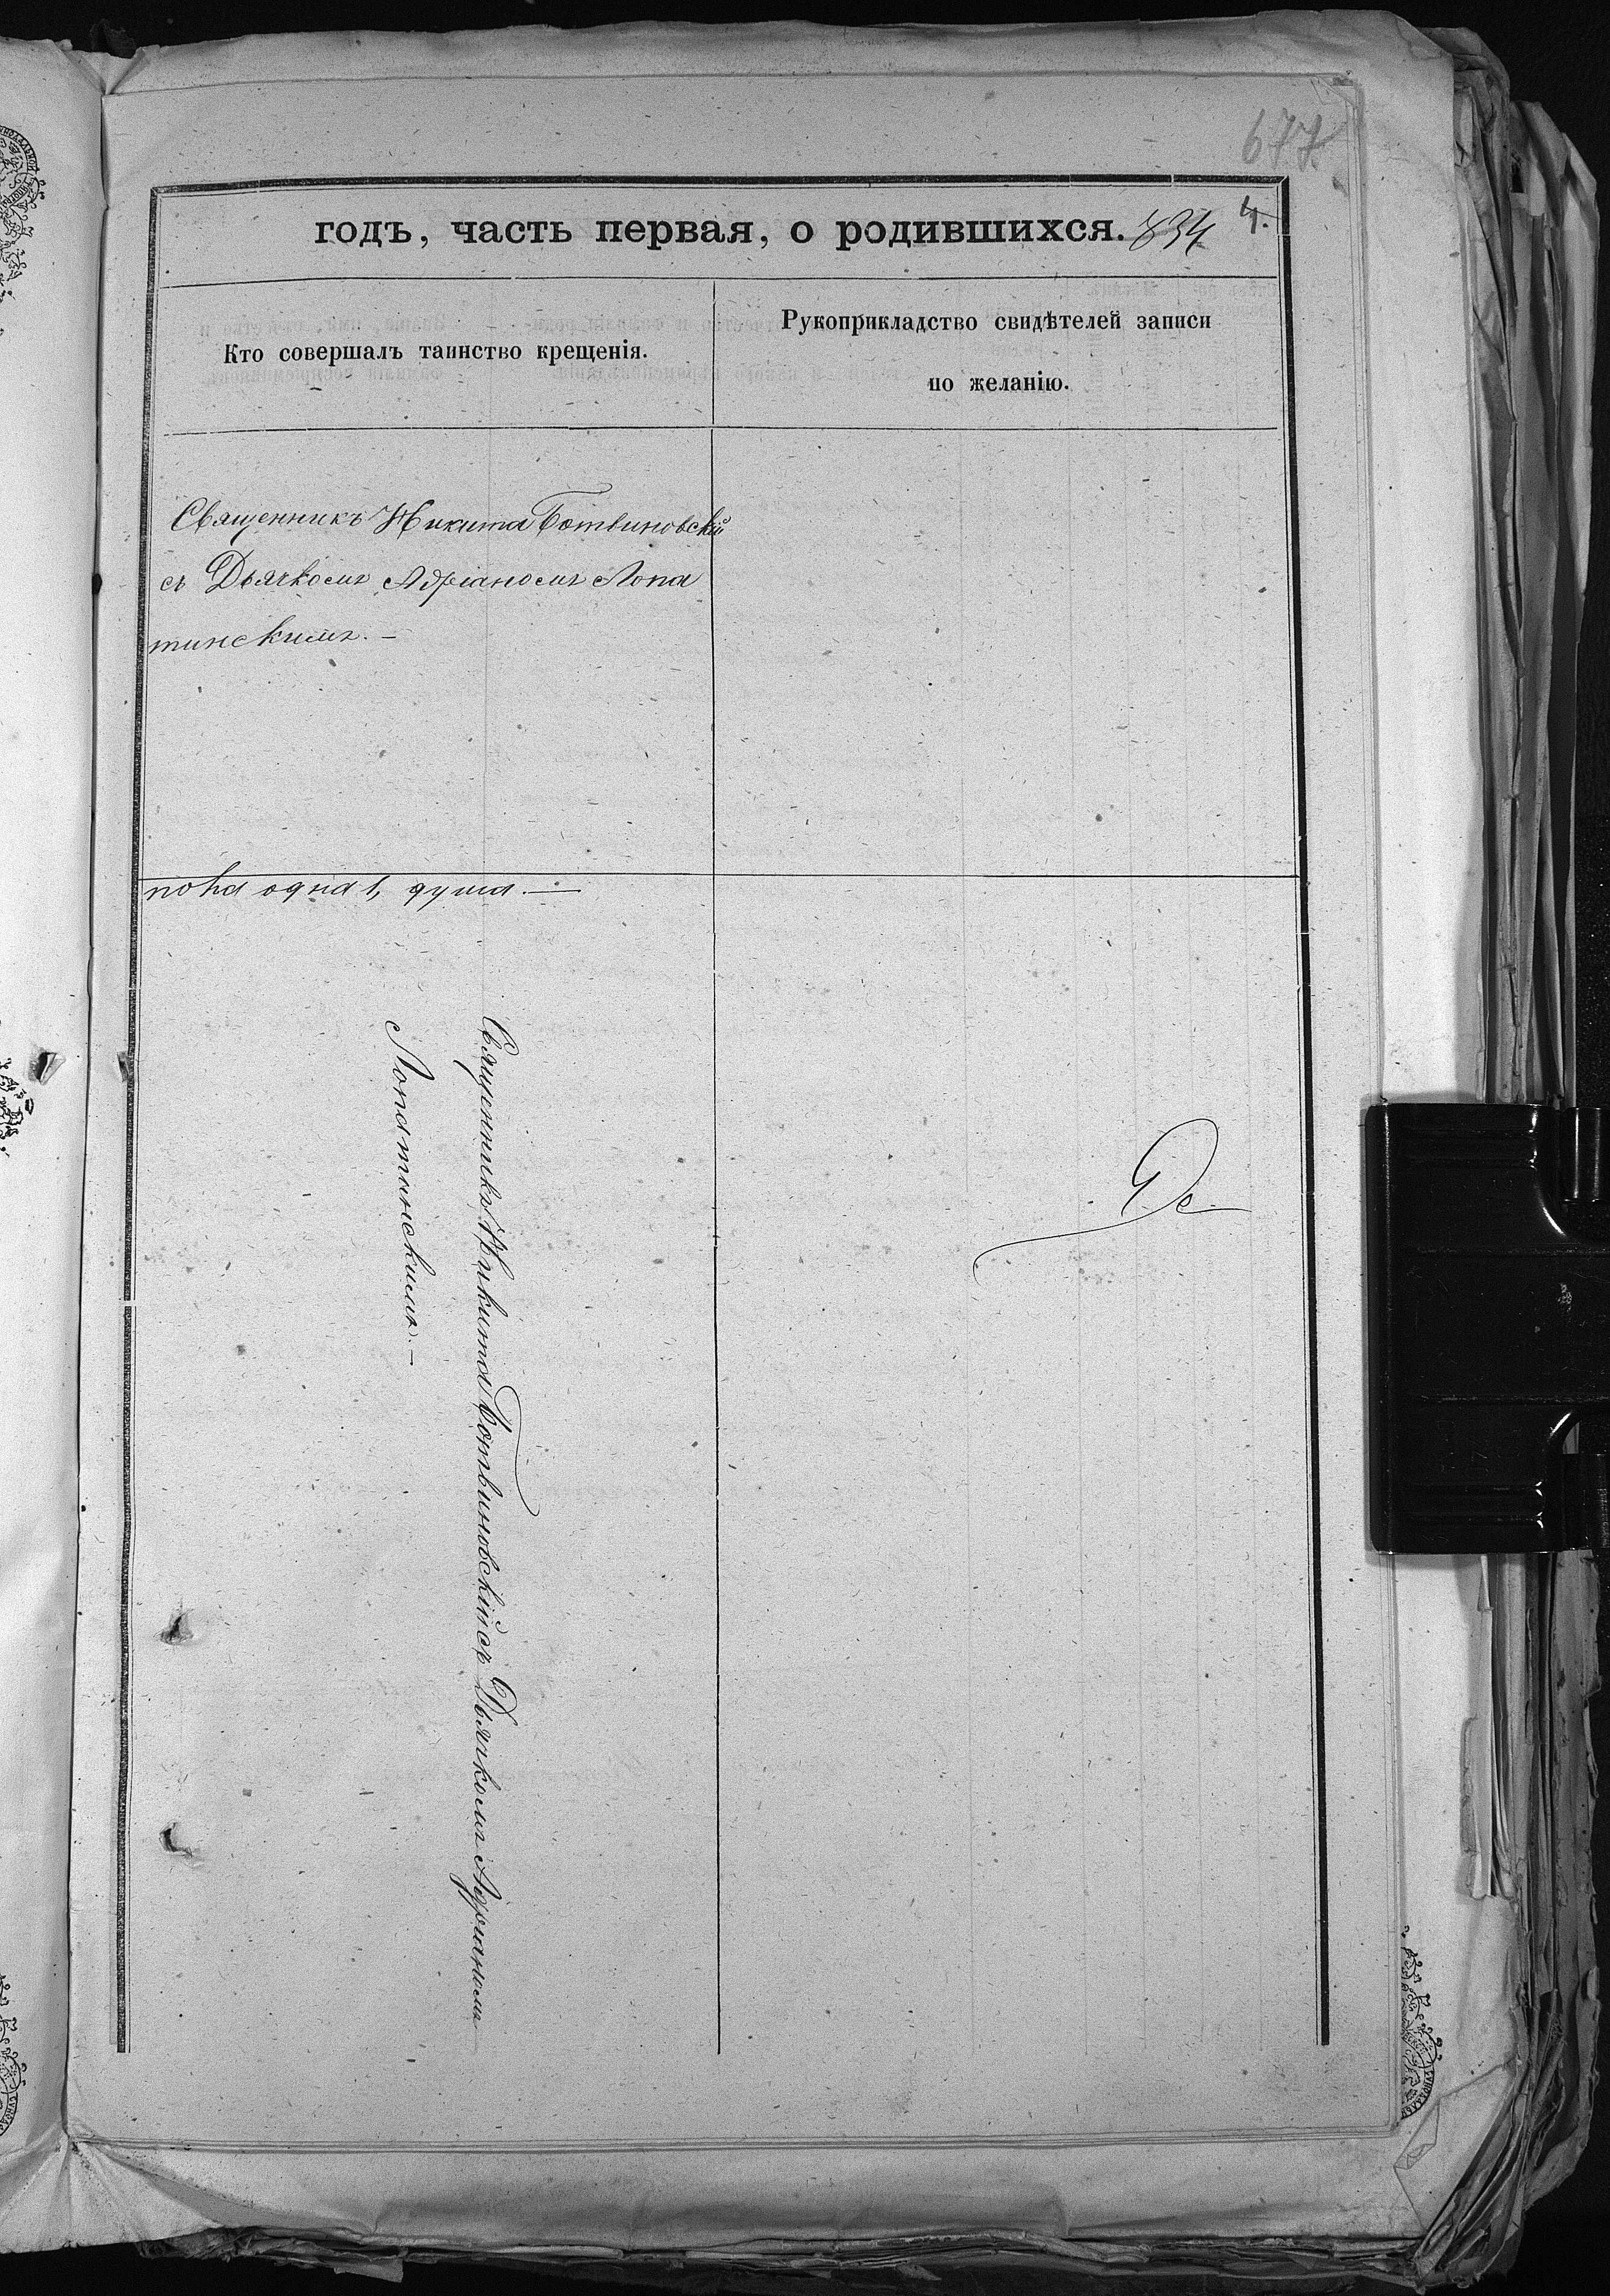 677
годъ, часть первая, о родившихся. 834 4.
Кто совершалъ таинство крещенія.
Рукоприкладство свидѣтелей записи
по желанію.
Священникъ Никита Ботвиновскій
съ Дьячкомъ Адріаномъ Лопа
тинскимъ. –
пока одна 1, душа. —
Священникъ Никита Ботвиновскій съ Дьячкомъ Адріаномъ
Лопатинскимъ. –